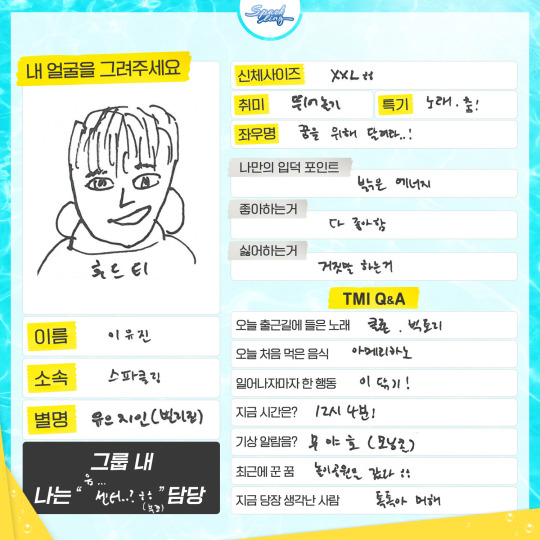 내 얼굴을 그려주세요
후드티
이름 이유진
소속 스파클링
별명
그룹 내
나는 " 음... 센터..? ㅎㅎ " 담당
신체사이즈 XXL
취미 뛰어놀기
특기 노래. 춤!
좌우명 꿈을 위해 달려라..!
나만의 입덕 포인트
밝은 에너지
좋아하는거
다 좋아함
싫어하는거
거짓말 하는거
TMI Q&A
오늘 출근길에 들은 노래
오늘 처음 먹은 음식 아메리카노
일어나자마자 한 행동 이 닦기!
지금 시간은? 12시 4분!
기상 알람음? 무야호 (모닝콜)
최근에 꾼 꿈 놀이공원을 갔다
지금 당장 생각난 사람 톡톡아 머해